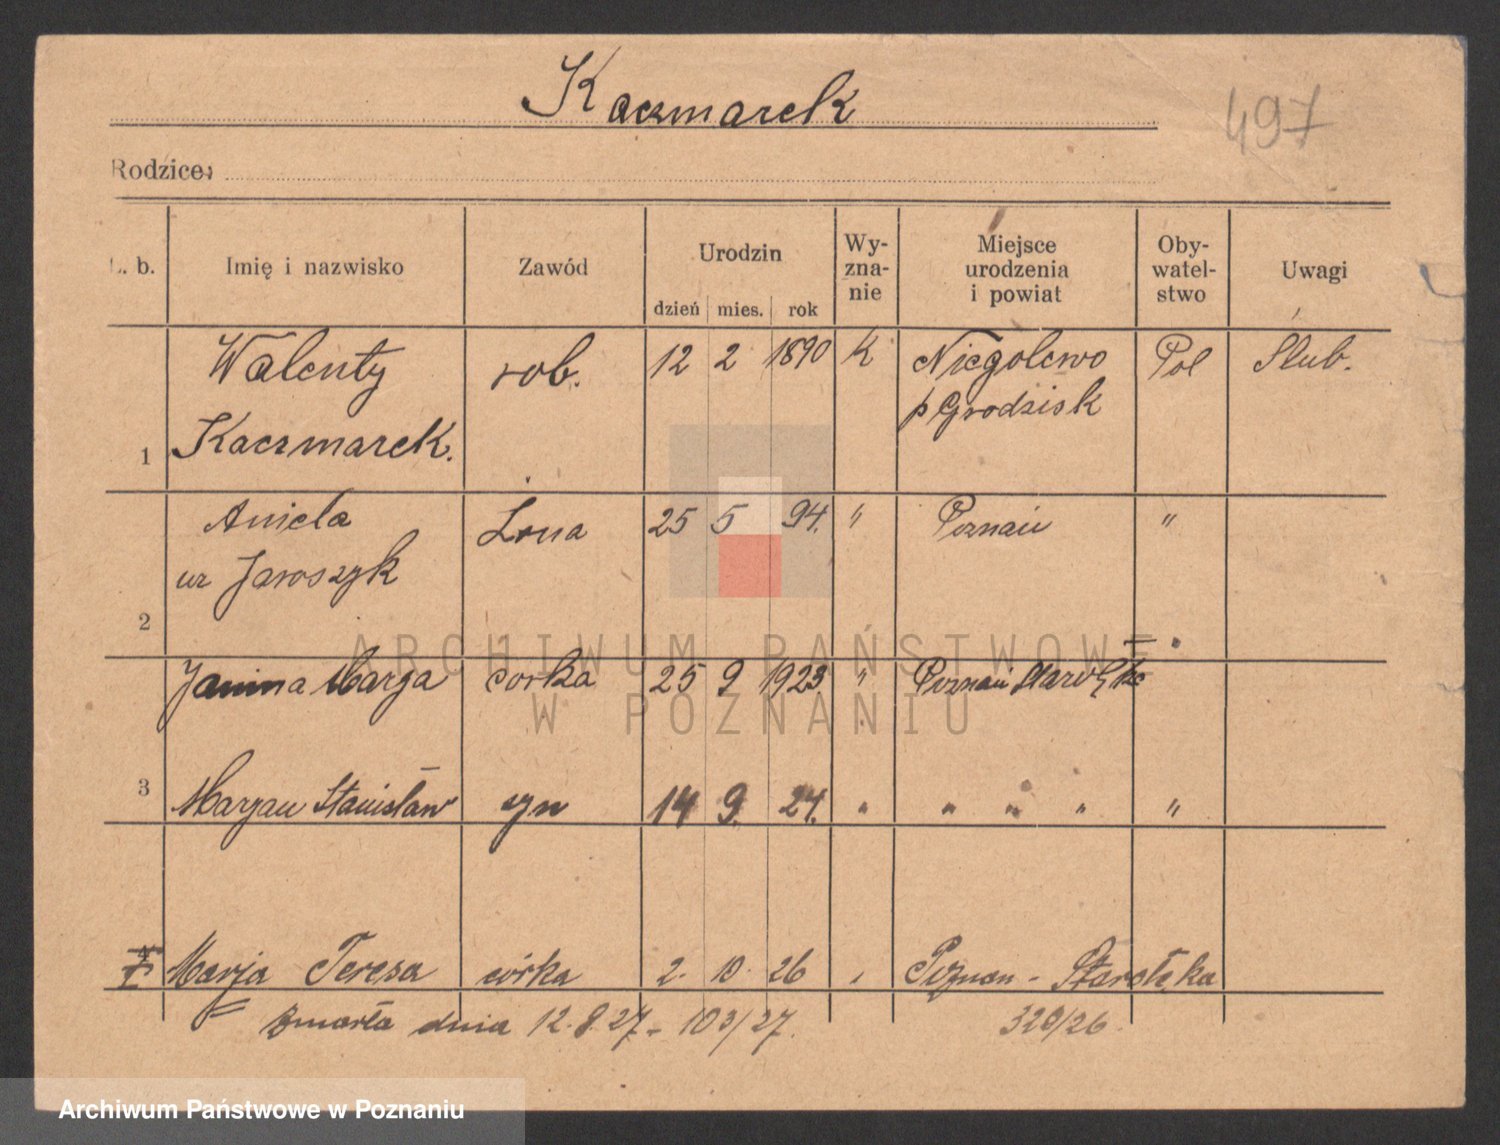 Kaczmarek
497
Rodzice:
L. b.
Imię i nazwisko
Zawód
Urodzin
dzień mies. rok
Wy-
zna-
nie
Miejsce
urodzenia
i powiat
Oby-
watel-
stwo
Uwagi
1 Walenty rob. 12 2 1890 K Niegolewo Pol Slub.
Kaczmarek. p Grodzisk
2 Aniela Żona 25 5 94. " Poznań "
ur Jaroszyk
Janina Marja corka 25 9 1923 " Poznań Starołęka
3 Marjan Stanisław syn 14 9. 24. " " " " "
4 Marja Teresa córka 2. 10. 26 " Poznan - Starołęka
Zmarła dnia 12.8.27 - 103/27. 320/26.
ARCHIWUM PAŃSTWOWE
W POZNANIU
Archiwum Państwowe w Poznaniu